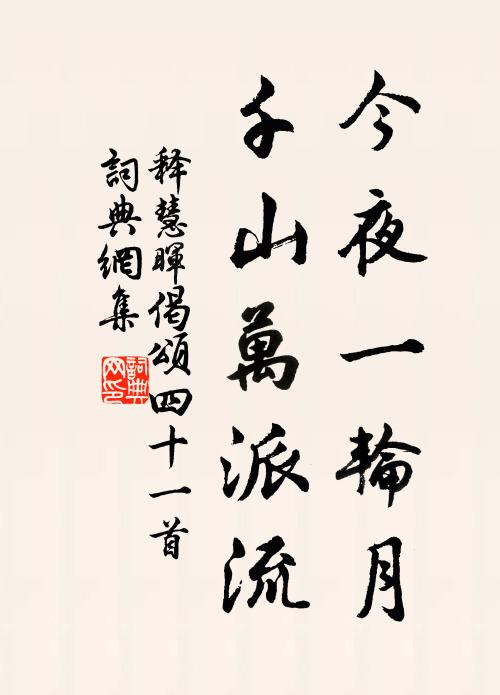 今夜一輪月
千山萬派流
释慧暉偈頌四十一首
詞典網集
詞典
网印